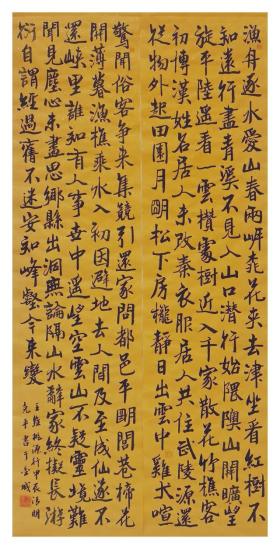 漁舟逐水愛山春兩岸桃花夾去津坐看紅樹不
知遠行盡青溪不見人山口潛行始隈隩山開曠望
旋平陸遥看一雲攢處樹近入千家散花竹樵客
初傳漢姓名居人未改秦衣服居人共住武陵源還
從物外起田園月明松下房櫳靜日出雲中雞犬喧
驚聞俗客争來集競引還家問都邑平明閭巷掃花
開薄暮漁樵乘水入初因避地去人間及至成仙遂不
還峽裏誰知有人事世中遥望空雲山不疑靈境難
聞見塵心未盡思鄉縣出洞無論隔山水辭家終擬長游
衍自謂經過舊不迷安知峰壑今來變
王維桃源行甲辰清明
克平書于金城